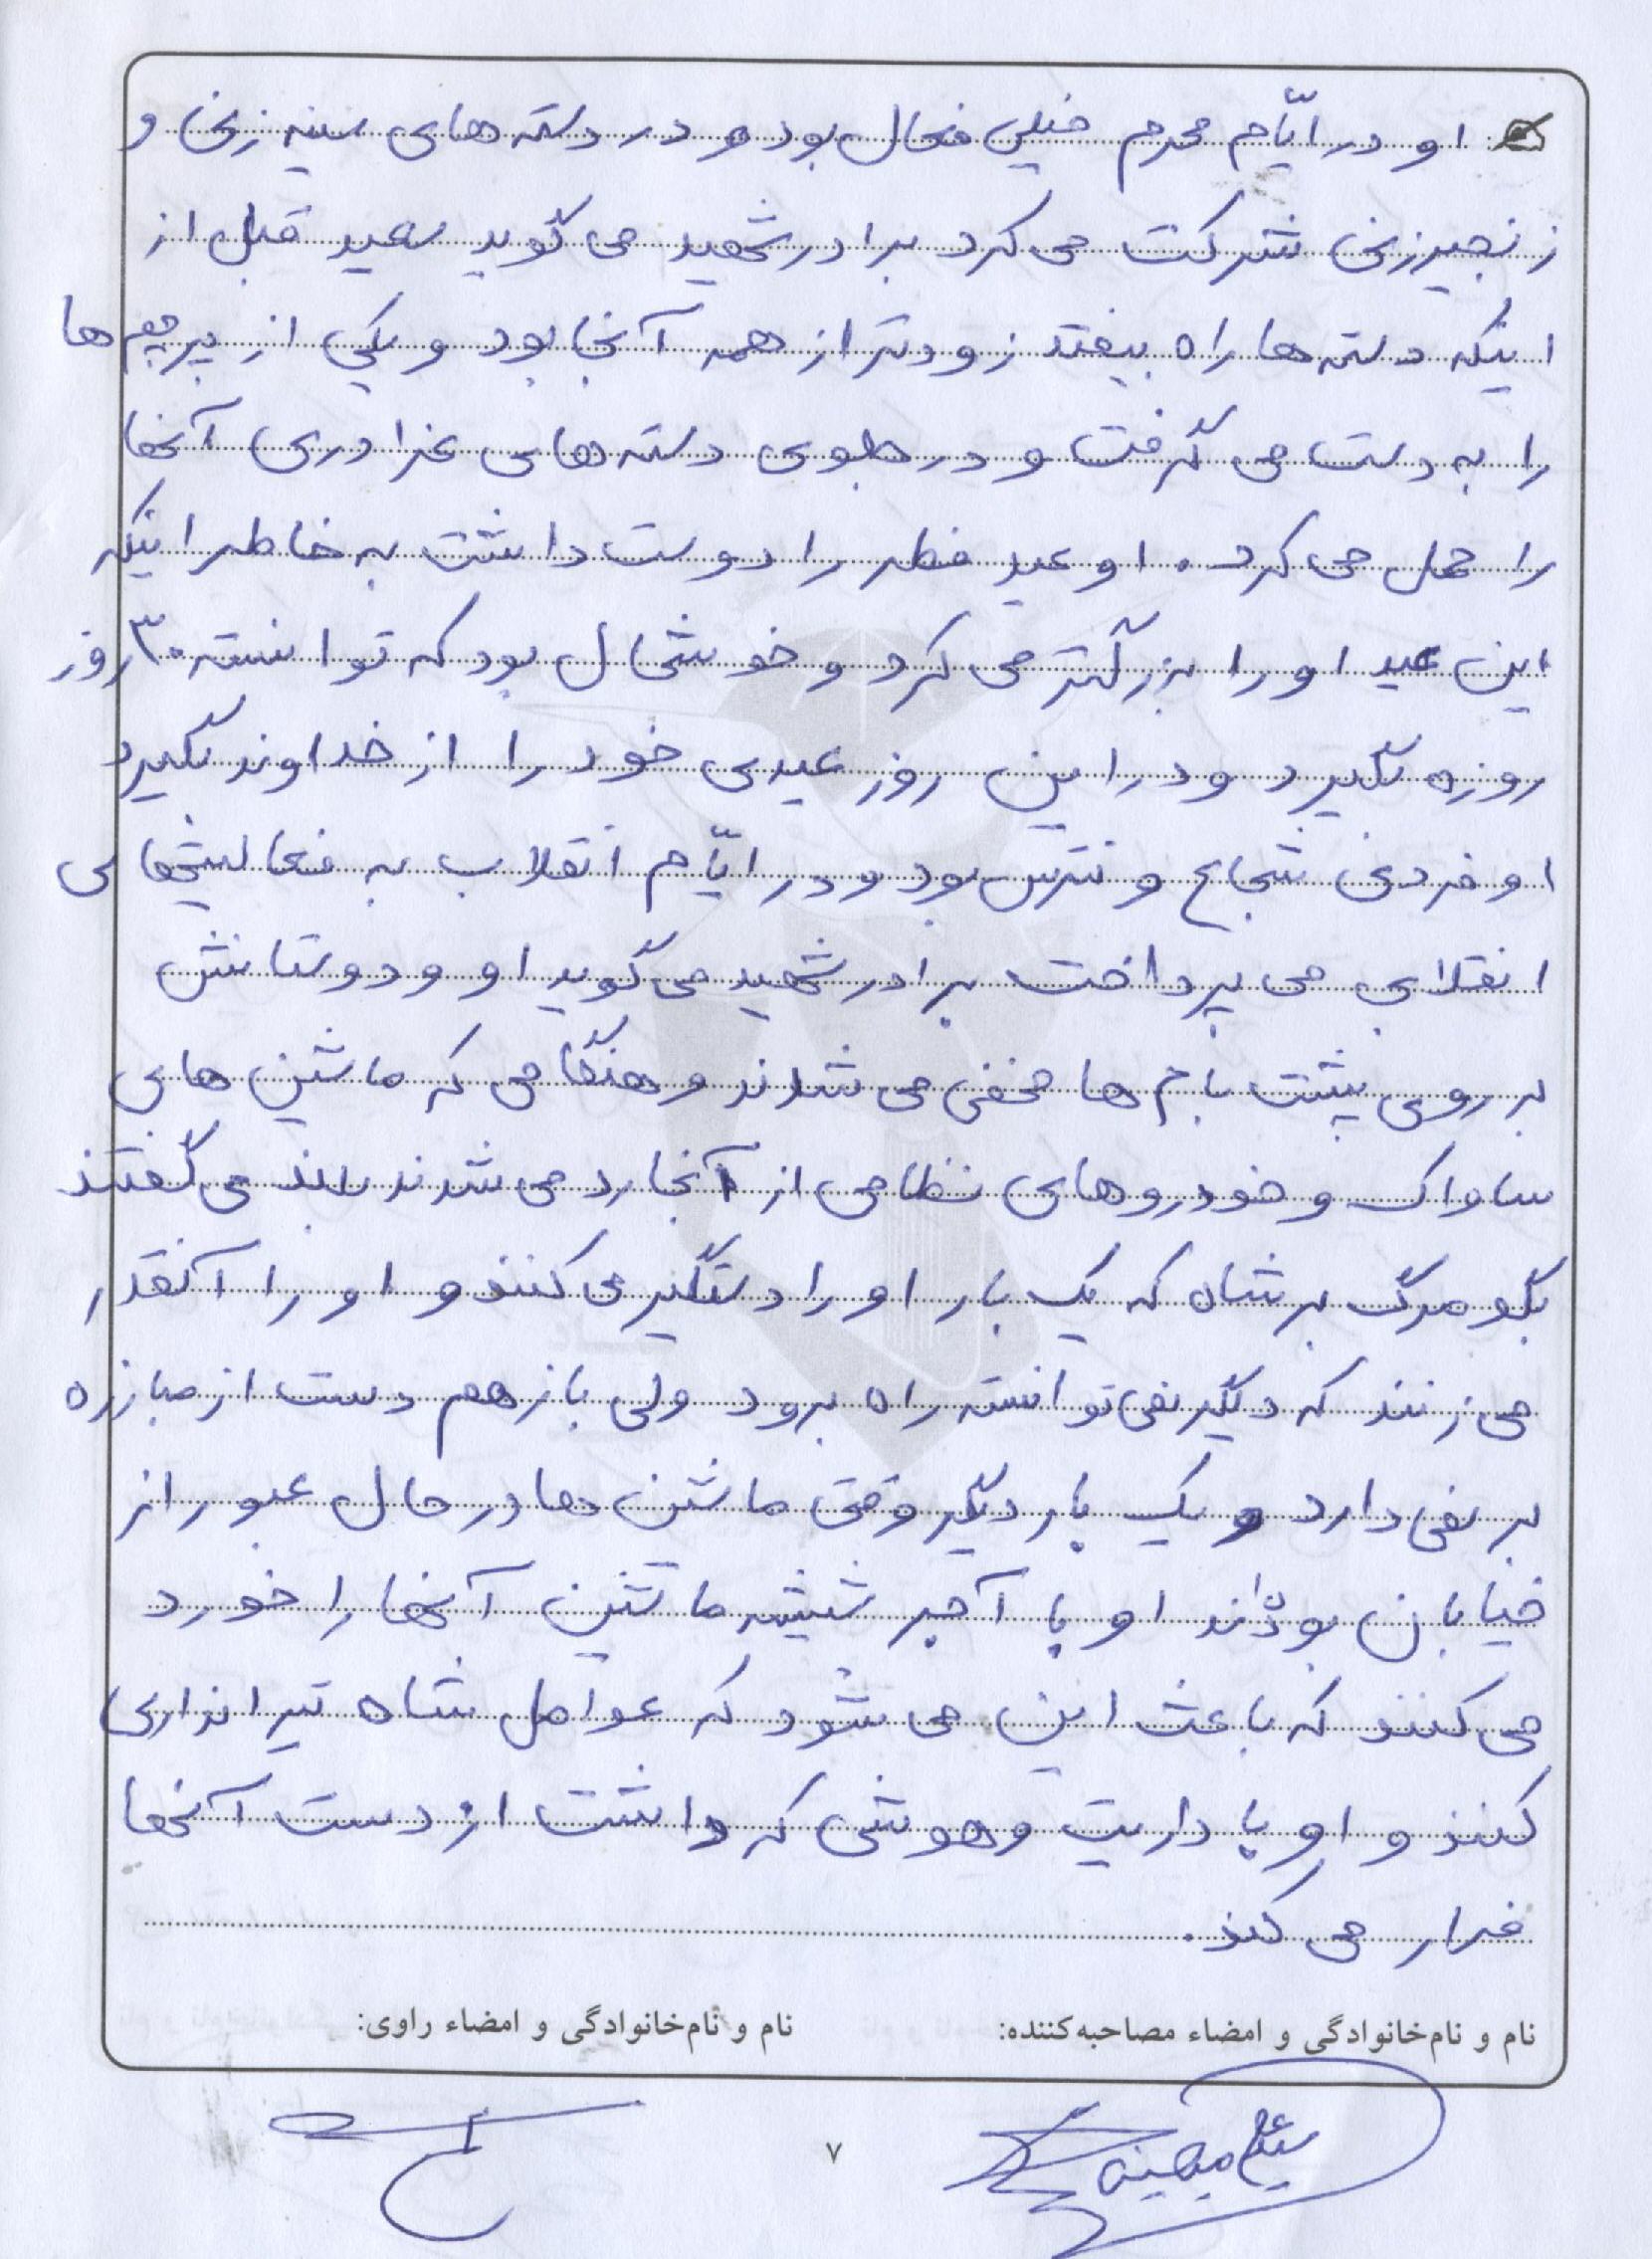 او در ایّام محرم خیلی فعال بود و در دسته های سینه زنی و
زنجیرزنی شرکت می کرد برادر شهید می گوید سعید قبل از
اینکه دسته ها راه بیفتد زودتر از همه آنجا بود و یکی از پرچم ها
را به دست می گرفت و در جلوی دسته های عزاداری آنها
را حمل می کرد. او عید فطر را دوست داشت به خاطر اینکه
این عید او را بزرگتر می کرد و خوشحال بود که توانسته ۳۰ روز
روزه بگیرد و در این روز عیدی خود را از خداوند بگیرد
او فردی شجاع و نترس بود و در ایّام انقلاب به فعالیتهای
انقلابی می پرداخت برادر شهید می گوید او و دوستانش
بر روی پشت بام ها مخفی می شدند و هنگامی که ماشین های
ساواک و خودروهای نظامی از آنجا رد می شدند بلند می گفتند
بگو مرگ بر شاه که یک بار او را دستگیر می کنند و او را آنقدر
می زنند که دیگر نمی توانسته راه برود ولی باز هم دست از مبارزه
بر نمی دارد و یک بار دیگر وقتی ماشین ها در حال عبور از
خیابان بودند او با آجر شیشه ماشین آنها را خورد
می کنند که باعث این می شود که عوامل شاه تیراندازی
کنند و او با درایت و هوشی که داشت از دست آنها
فرار می کند.
نام و نام‌خانوادگی و امضاء مصاحبه‌کننده:
نام و نام‌خانوادگی و امضاء راوی:
۷